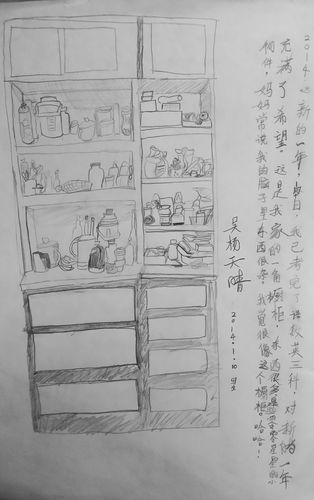 2014新的一年！日，我已考完了语数英三科，对新的一年
充满了希望。这是我家的一角橱柜，东西很多是些零零星星的小
物件，妈妈常说我的脑子里东西很杂，我觉很像这个橱柜。哈哈！
吴杨天晴
2014.1.10